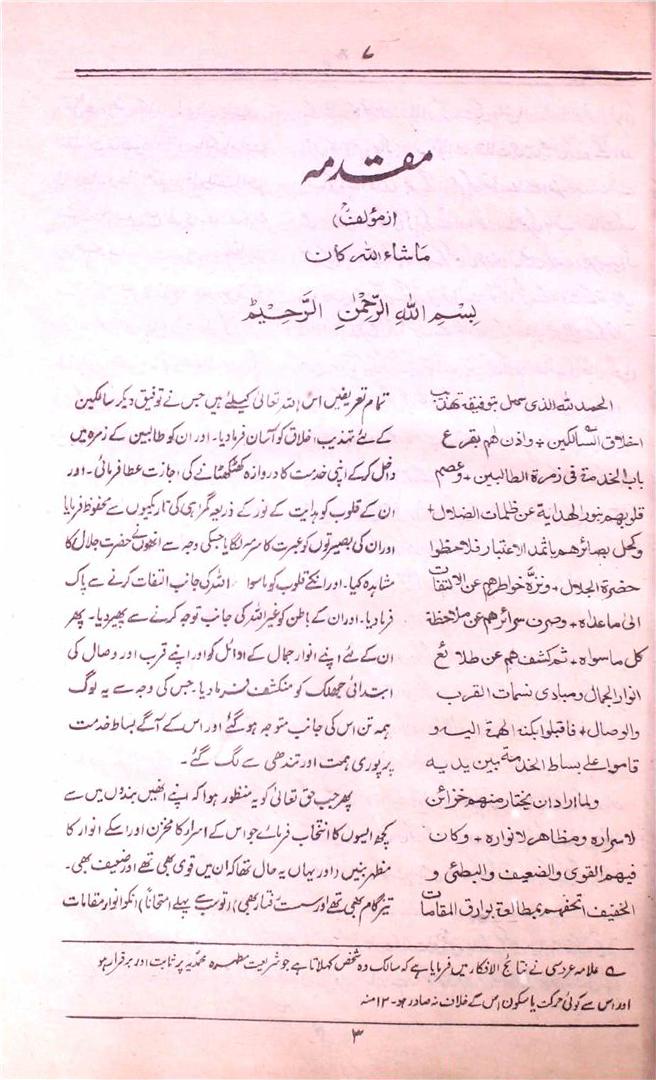 ۷
مقدمہ
(از مؤلفؒ)
ماشاء اللہ کان
بِسْمِ اللهِ الرَّحْمٰنِ الرَّحِيْمِ
الحمد لله الذی سهل بتوفیقہ تهذیب
اخلاق السّالکین + واذن لهم بقرع
باب الخدمة فی زمرة الطالبین + وعصم
قلوبهم بنور الهدایة عن ظلمات الضلال +
وکحل بصائرهم باثمد الاعتبار فلاحظوا
حضرة الجلال + ونزّہ خواطرهم عن الالتفات
الی ماعداہ + وصرف سرائرهم عن ملاحظة
کل ماسواہ + ثم کشف لهم عن طلائع
انوار الجمال ومبادی نسمات القرب
والوصال + فاقبلوا بکنہ الهمة الیہ و
قاموا علی بساط الخدمة بین یدیہ
ولما اراد ان یختار منهم خزائن
لاسرارہ ومظاهر لانوارہ + وکان
فیهم القوی والضعیف والبطئ و
الخفیف اتحفهم بمطالعة بوارق المقامات
تمام تعریفیں اس اللہ تعالیٰ کیلئے ہیں جس نے توفیق دیکر سالکین
کے لئے تہذیب اخلاق کو آسان فرمادیا۔ اور ان کو طالبین کے زمرہ میں
داخل کرکے اپنی خدمت کا دروازہ کھٹکھٹانے کی اجازت عطا فرمائی۔ اور
ان کے قلوب کو ہدایت کے نور کے ذریعہ گمراہی کی تاریکیوں سے محفوظ فرمایا
اور ان کی بصیرتوں کو عبرت کا سرمہ لگایا جسکی وجہ سے انھوں نے حضرت جلال کا
مشاہدہ کیا۔ اور انکے قلوب کو ماسوا اللہ کی جانب التفات کرنے سے پاک
فرمادیا۔ اور ان کے باطن کو غیر اللہ کی جانب توجہ کرنے سے پھیر دیا۔ پھر
ان کے لئے اپنے انوار جمال کے اوائل کو اور اپنے قرب اور وصال کی
ابتدائی جھلک کو منکشف فرمادیا۔ جس کی وجہ سے یہ لوگ
ہمہ تن اس کی جانب متوجہ ہوگئے اور اس کے آگے بساط خدمت
پر پوری ہمت اور تندھی سے لگ گئے۔
پھر جب حق تعالیٰ کو یہ منظور ہوا کہ اپنے انھیں بندوں میں سے
کچھ ایسوں کا انتخاب فرمائے جو اس کے اسرار کا مخزن اور اسکے انوار کا
مظہر بنیں (اور یہاں یہ حال تھا کہ ان میں قوی بھی تھے اور ضعیف بھی۔
تیزگام بھی تھے اور سست رفتار بھی) (تو سب سے پہلے امتحاناً) انکو انوار مقامات
ے علامہ عروسی نے نتائج الافکار میں فرمایا ہے کہ سالک وہ شخص کہلاتا ہے جو شریعت مطہرہ محمدیہ پر ثابت اور برقرار ہو
اور اس سے کوئی حرکت یا سکون اس کے خلاف نہ صادر ہو۔ ۱۲ منہ
۳